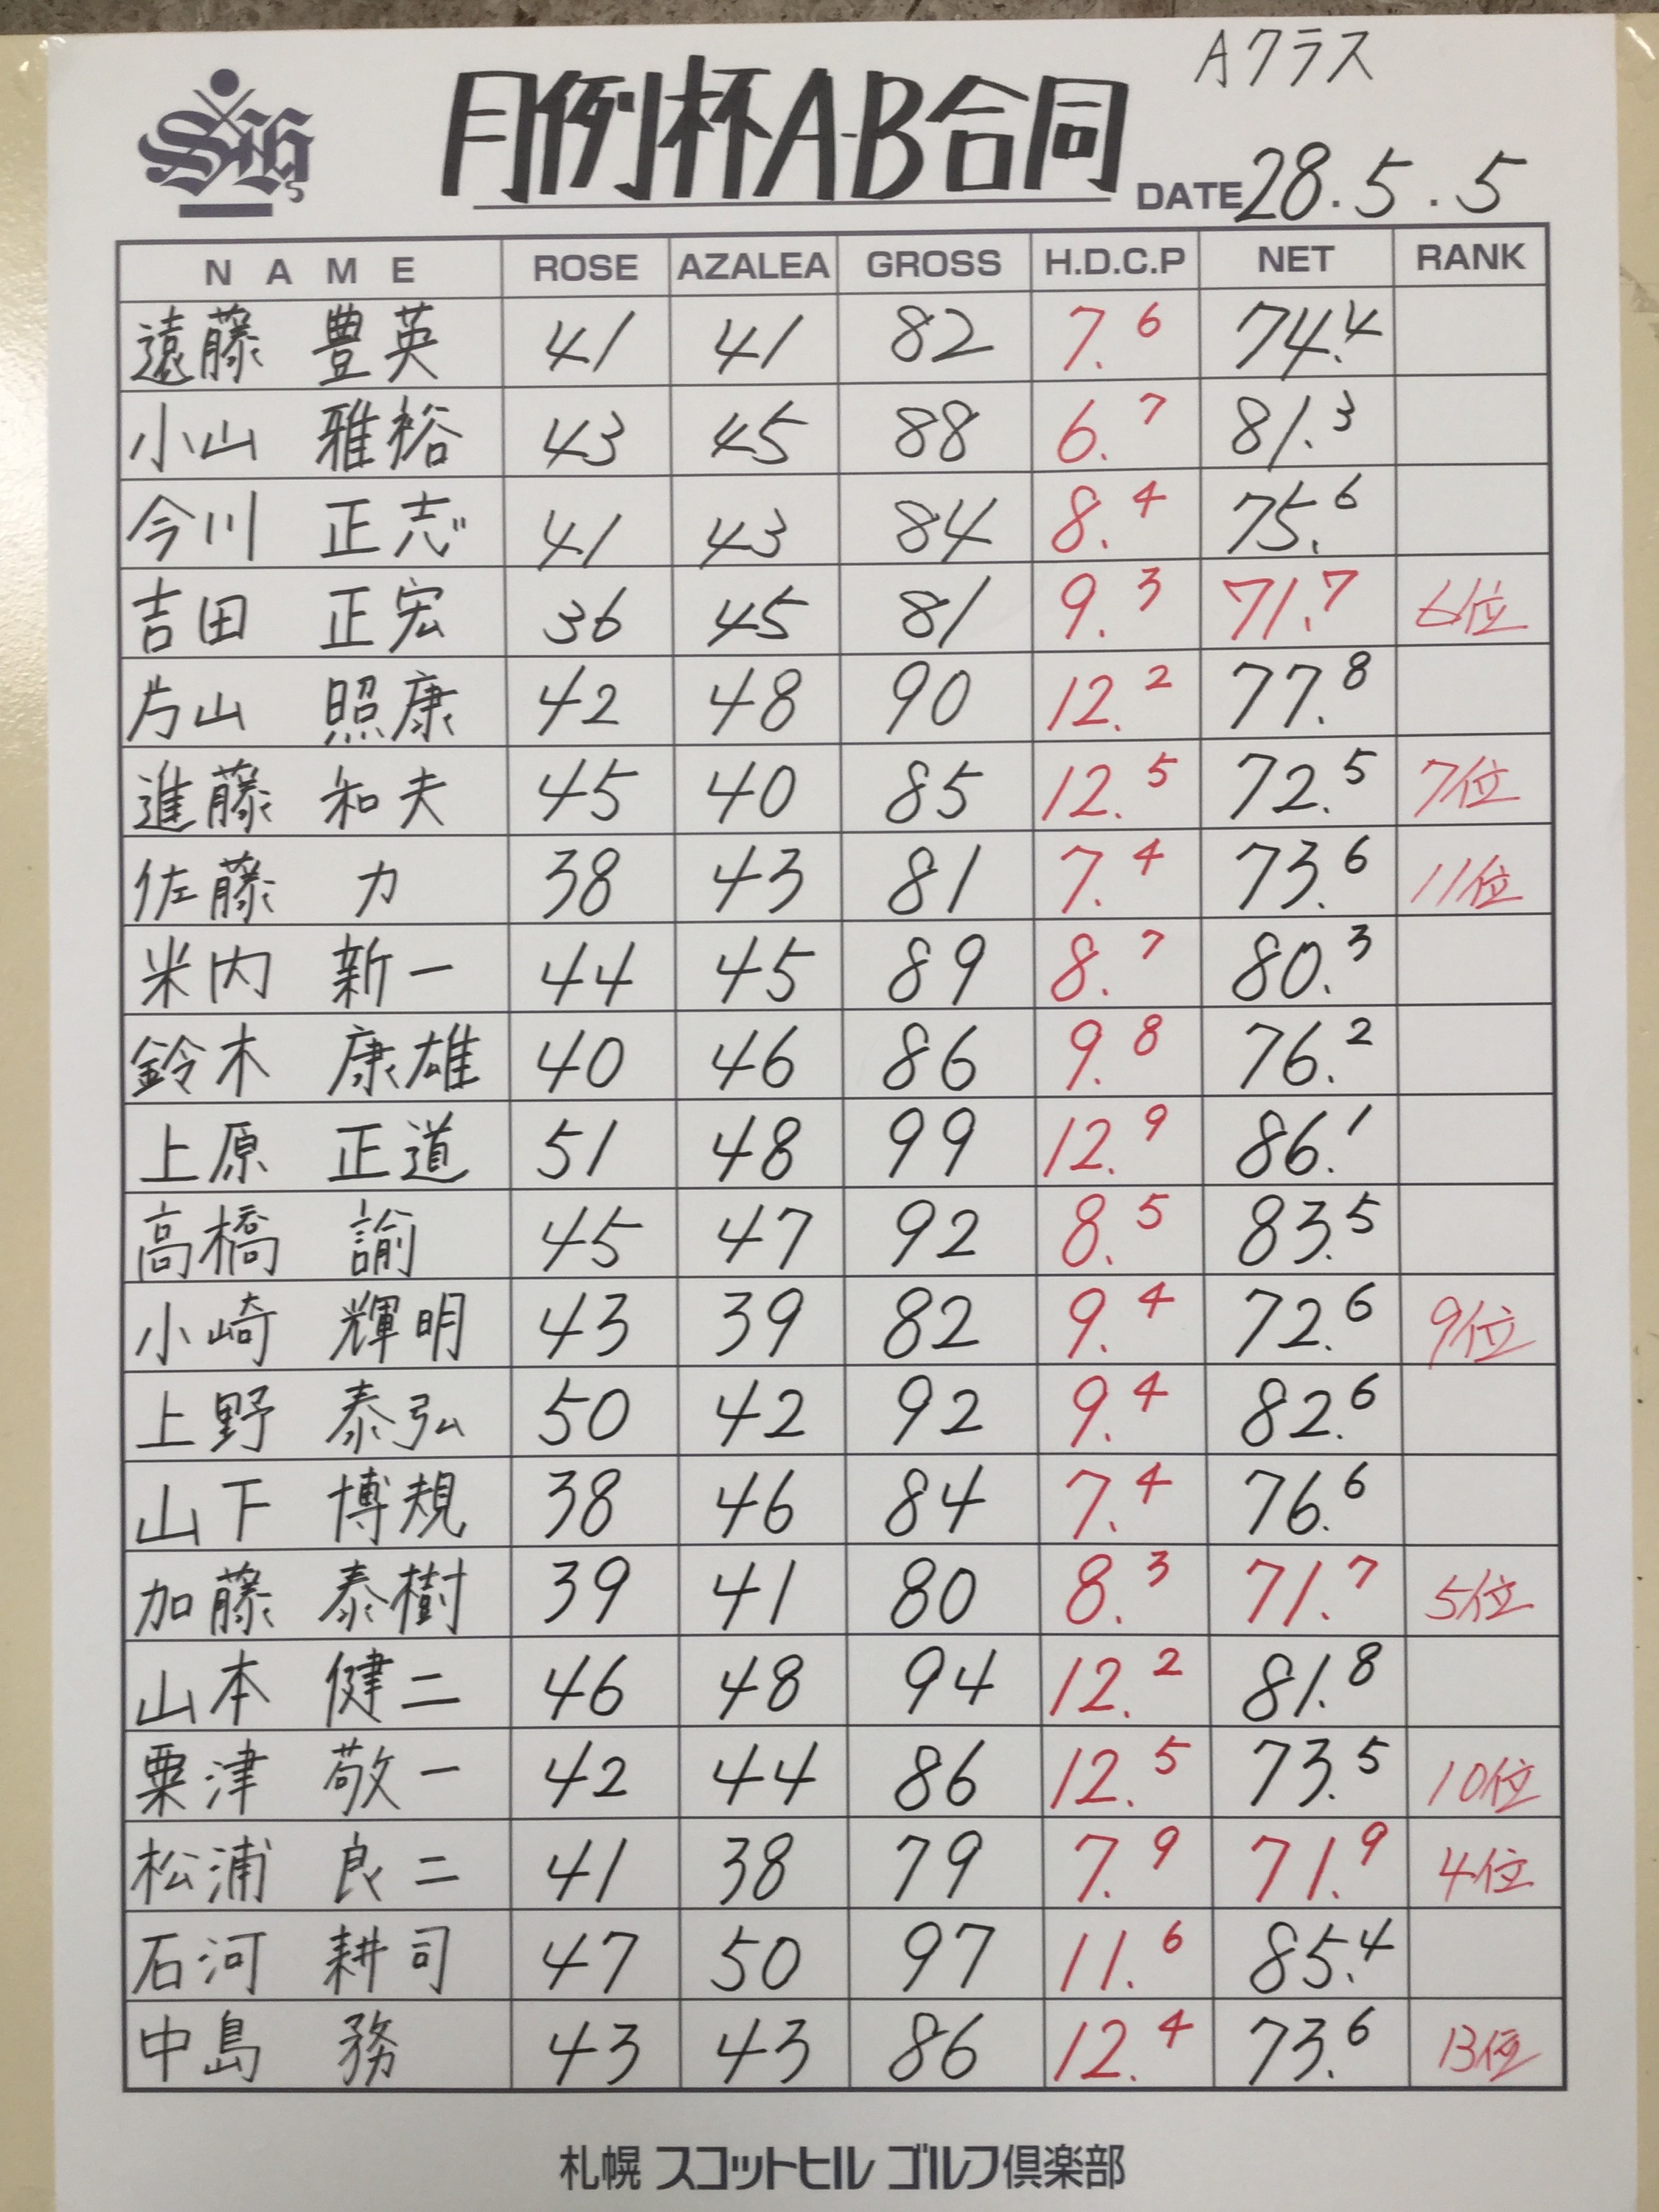 Aクラス
月例杯A-B合同
DATE 28.5.5
NAME ROSE AZALEA GROSS H.D.C.P NET RANK
遠藤 豊英 41 41 82 7.6 74.4
小山 雅裕 43 45 88 6.7 81.3
今川 正志 41 43 84 8.4 75.6
吉田 正宏 36 45 81 9.3 71.7 6位
片山 照康 42 48 90 12.2 77.8
進藤 和夫 45 40 85 12.5 72.5 7位
佐藤 力 38 43 81 7.4 73.6 11位
米内 新一 44 45 89 8.7 80.3
鈴木 康雄 40 46 86 9.8 76.2
上原 正道 51 48 99 12.9 86.1
高橋 諭 45 47 92 8.5 83.5
小崎 輝明 43 39 82 9.4 72.6 9位
上野 泰弘 50 42 92 9.4 82.6
山下 博規 38 46 84 7.4 76.6
加藤 泰樹 39 41 80 8.3 71.7 5位
山本 健二 46 48 94 12.2 81.8
粟津 敬一 42 44 86 12.5 73.5 10位
松浦 良二 41 38 79 7.9 71.9 4位
石河 耕司 47 50 97 11.6 85.4
中島 務 43 43 86 12.4 73.6 13位
札幌 スコットヒル ゴルフ倶楽部